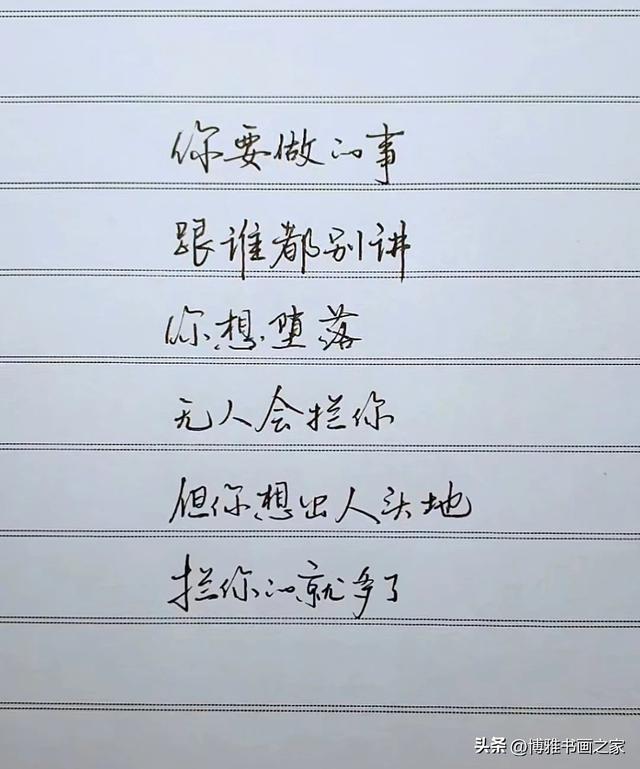 你要做的事
跟谁都别讲
你想堕落
无人会拦你
但你想出人头地
拦你的就多了
头条 @博雅书画之家